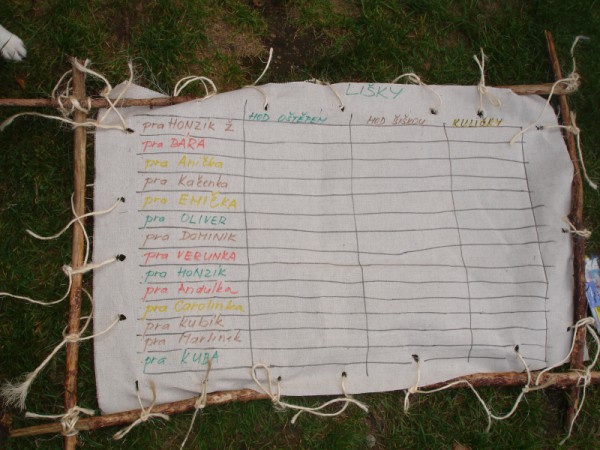 LIŠKY
HOD OŠTĚPEM HOD ŠIŠKOU KULIČKY
pra HONZIK Ž.
pra BÁRA
pra Anička
pra Kačenka
pra EMIČKA
pra OLIVER
pra DOMINIK
pra VERUNKA
pra HONZÍK
pra Andulka
pra Carolinka
pra Kubík
pra Martínek
pra KUBA